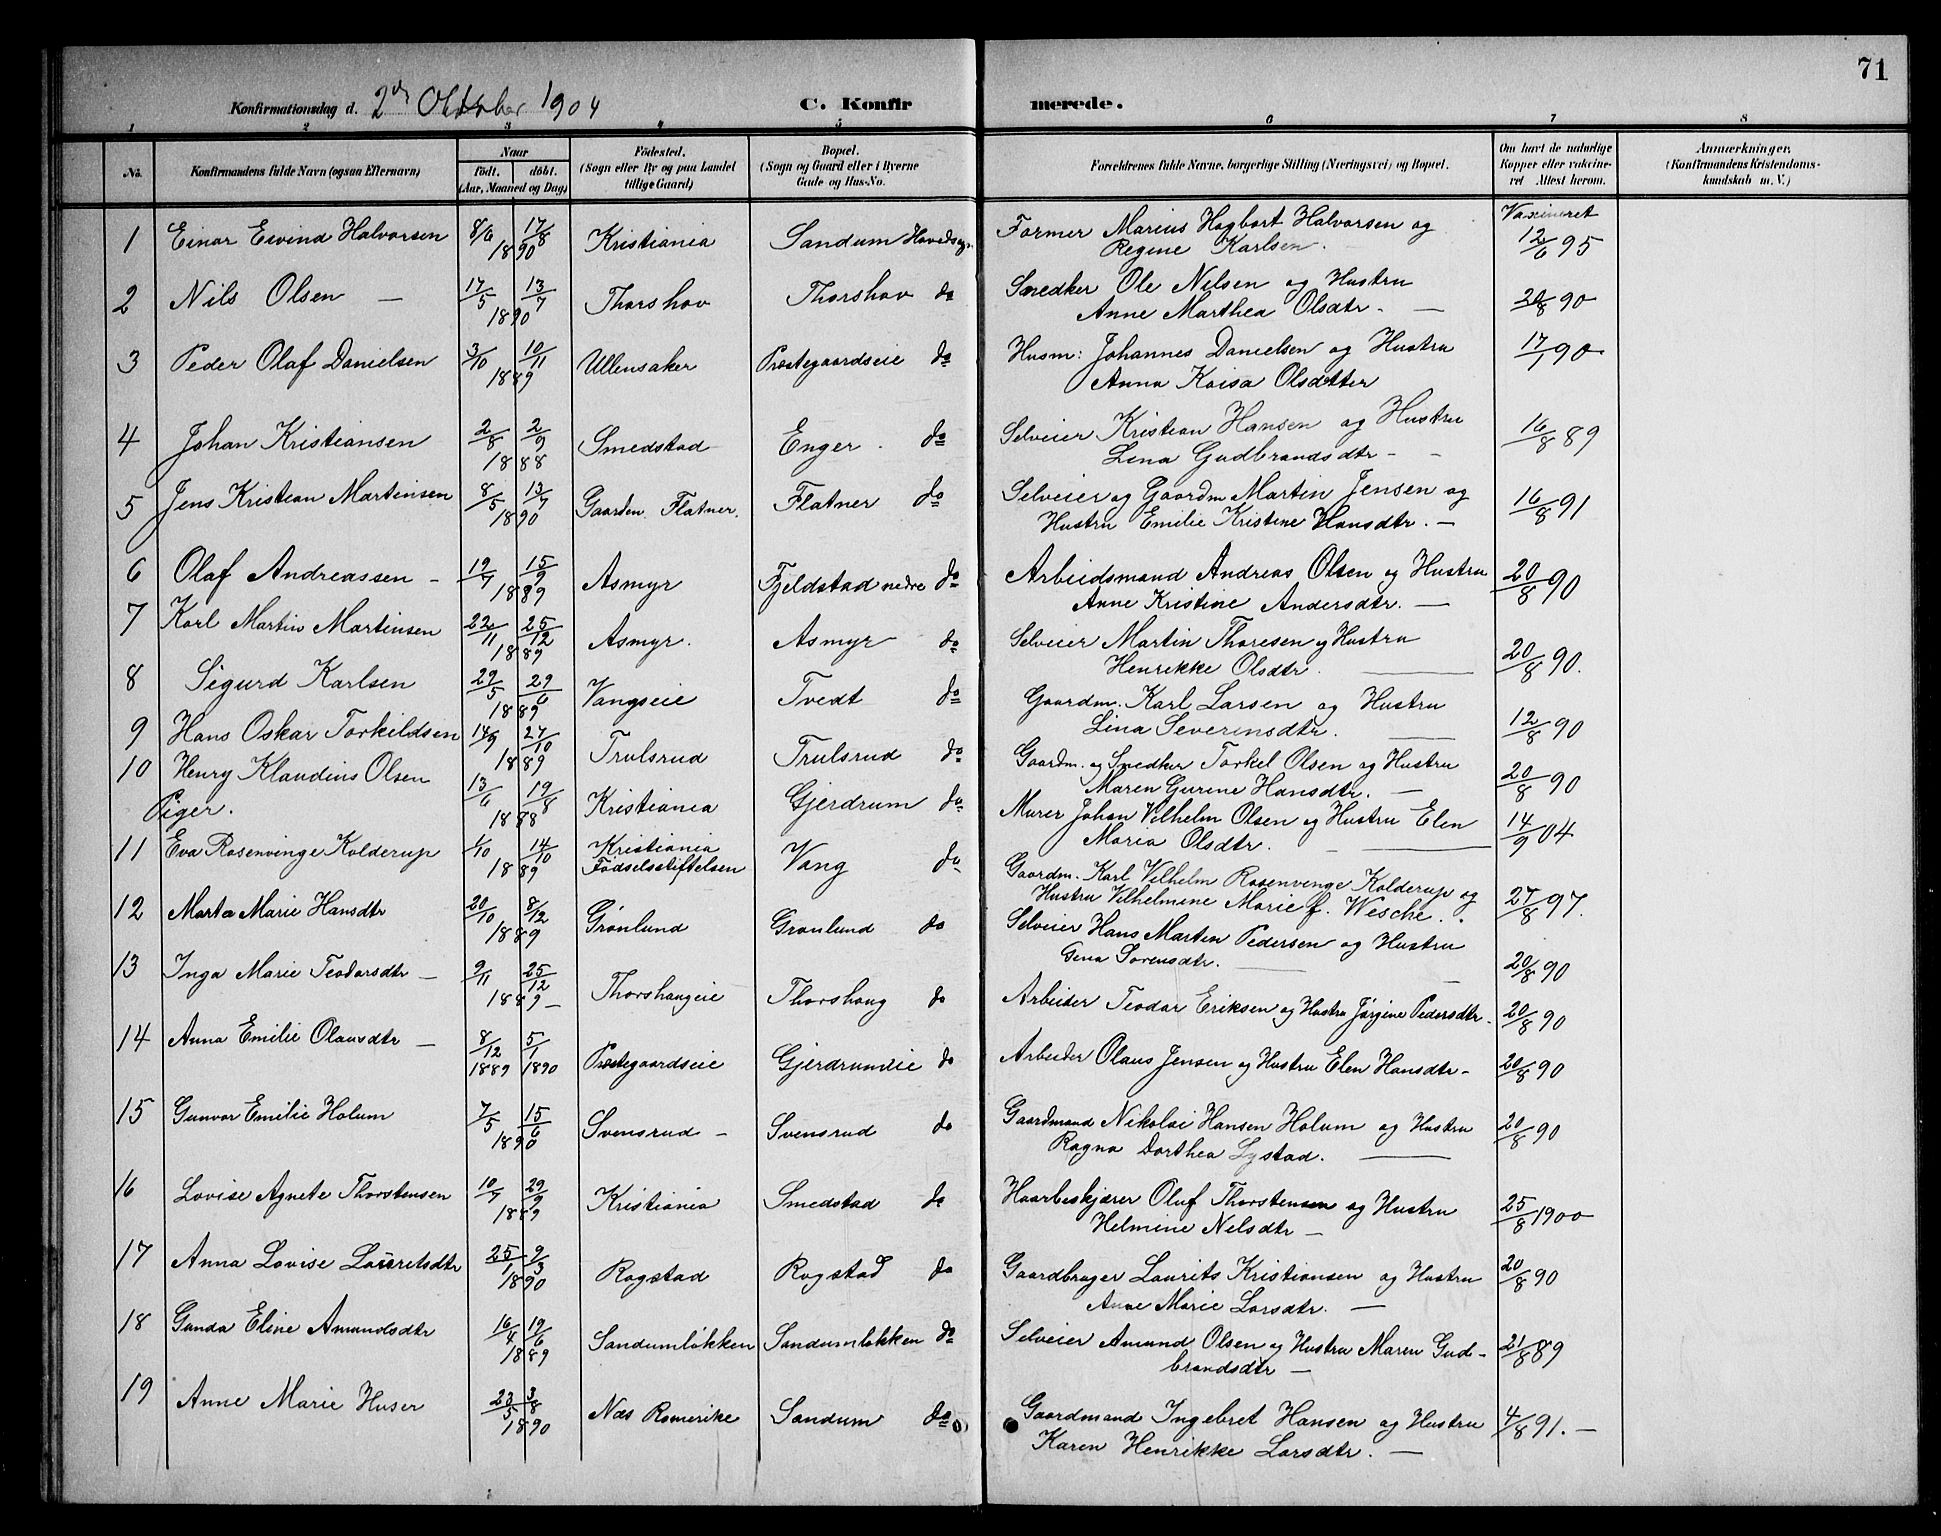 71
Konfirmationsdag d. 2den Oktober 1904 C. Konfir merede.
1 2 3 4 5 6 7 8
No. Konfirmandens fulde Navn (ogsaa Efternavn) Naar født. døbt. (Aar, Maaned og Dag) Fødested. (Sogn eller By og paa Landet tillige Gaard) Bopæl. (Sogn og Gaard eller i Byerne Gade og Hus-No. Forældrenes fulde Navne, borgerlige Stilling (Næringsvei) og Bopæl. Om havt de naturlige Kopper eller vakcineret Attest herom. Anmærkninger. (Konfirmandens Kristendomskundskab m. V.)
1 Einar Eivind Halvorsen 8/6 17/8 1890 Kristiania Sandum Hovedsogn Former Marius Hagbart Halvorsen og Vaxineret
Regine Karlsen. 12/6 95
2 Nils Olsen — 17/5 13/7 1890 Thorshov Thorshov do Snedker Ole Nilsen og Hustru
Anne Marthea Olsdtr. — 20/8 90
3 Peder Olaf Danielsen 3/10 10/11 1889 Ullensaker Præstegaardseie do Husm: Johannes Danielsen og Hustru 17/7 90
Anna Kaisa Olsdatter
4 Johan Kristiansen 2/8 2/9 1888 Smedstad Enger do Selveier Kristian Hansen og Hustru 16/8 89
Lina Gudbrandsdtr —
5 Jens Kristian Martinsen 8/5 13/7 1890 Gaarden Flatner. Flatner do Selveier og Gaardm Martin Jensen og 16/8 91
Hustru Emilie Kristine Hansdtr. —
6 Olaf Andreassen — 19/7 15/9 1889 Asmyr Fjeldstad nedre do Arbeidsmand Andreas Olsen og Hustru 20/8 90
Anne Kristine Andersdtr. —
7 Karl Martin Martinsen 22/11 25/12 1889 Asmyr. Asmyr do Selveier Martin Thoresen og Hustru
Henrikke Olsdtr. — 20/8 90.
8 Sigurd Karlsen 29/5 29/6 1889 Vangseie Tvedt do Gaardm. Karl Larsen og Hustru
Lina Severinsdtr. — 12/8 90
9 Hans Oskar Torkildsen 14/9 27/10 1889 Trulsrud Trulsrud do Gaardm. og Snedker Torkel Olsen og Hustru
Maren Gurine Hansdtr. — 20/8 90
10 Henry Klaudius Olsen 13/6 19/8 1888 Kristiania Gjerdrum do. Murer Johan Vilhelm Olsen og Hustru Elen
Maria Olsdtr. — 14/9 04
Piger.
11 Eva Rosenvinge Kolderup 1/10 14/10 1889 Kristiania Fødselsstiftelsen Vang do Gaardm. Karl Vilhelm Rosenvinge Kolderup og
Hustru Vilhelmine Marie f. Wesche. 27/8 97.
12 Marta Marie Hansdtr 20/10 8/12 1889 Grønlund Grønlund do Selveier Hans Martin Pedersen og Hustru
Gina Sørensdtr. — 20/8 90
13 Inga Marie Teodorsdtr — 9/11 25/12 1889 — Thorshaugeie Thorshaug do Arbeider Teodor Eriksen og Hustru Jørgine Pedersdtr. 20/8 90
14 Anna Emilie Olausdtr — 8/12 1889 5/1 1890 Præstegaardseie Gjerdrumeie do Arbeider Olaus Jensen og Hustru Elen Hansdtr — 20/8 90
15 Gunvor Emilie Holum 7/5 15/6 1890 Svensrud — Svensrud do Gaardmand Nikolai Hansen Holum og Hustru 20/8 90
Ragna Dorthea Lystad. —
16 Lovise Agnete Thorstensen 10/7 29/9 1889 Kristiania Smedstad do Haarbeskjærer Oluf Thorstensen og Hustru 25/8 1900
Helmine Nelsdtr —
17 Anna Lovise Lauritsdtr 25/1 9/3 1890 Rogstad Rogstad do Gaardbruger Laurits Kristiansen og Hustru 20/8 90
Anne Marie Larsdtr. —
18 Gunda Eline Amundsdtr 16/4 19/6 1889 Sandumløkken Sandumløkken do Selveier Amund Olsen og Hustru Maren Gud- 21/8 89
brandsdtr —
19 Anne Marie Huser 23/5 3/8 1890 Næs Romerike Sandum do Gaardmand Ingebret Hansen og Hustru 4/8 91. —
Karen Henrikke Larsdtr. —